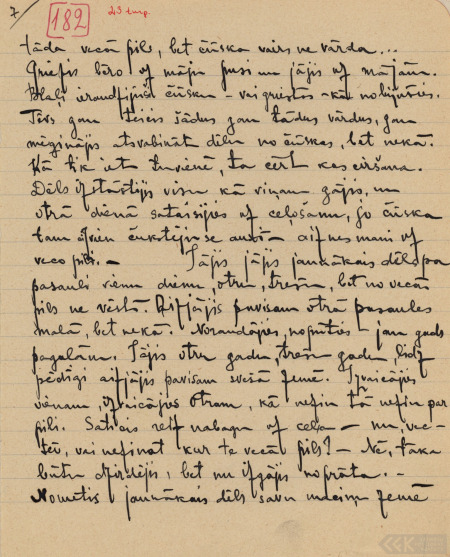 7
182
23 turp.
tāda vecā pils, bet čūska vairs ne vārda...
Griezis bēro uz mājas pusi un jājis uz mājām.
Blakj ieraudzījuši čūsku – vai griestos – kā nobijušies.
Tēvs gan teicis šādus gan tādus vārdus, gan
mēģinājis atsvabināt dēlu no čūskas, bet nekā.
Kā tik iet tuvienē, tā cērt kas ciršana.
Dēls izstāstījis visu kā viņam gājis, un
otrā dienā sataisījies uz ceļošanu, jo čūska
tam čukstējuse ausī – aiznes mani uz
veco pili. –
Jājis jājis jaunākais dēls pa
pasauli vienu dienu, otru, trešu, bet no vecās
pils ne vēsts. Aizjājis pavisam otrā pasaules
malā, bet nekā. Noraudājies, nopūties – jau gads
pagalam. Jājis otru gadu, trešu gadu, līdz
pēdīgi aizjājis pavisam svešā zemē. Izvaicājis
vienam, izvaicājies otram, kā nezin tā nezin par
pili. Saticis reiz nabagu uz ceļa – nu, vec-
tēv, vai nezināt kur te vecā pils? – Nē, taka
būtu dzirdējis, bet nu izgājis no prāta. –
Nometis jaunākais dēls savu mēteli zemē